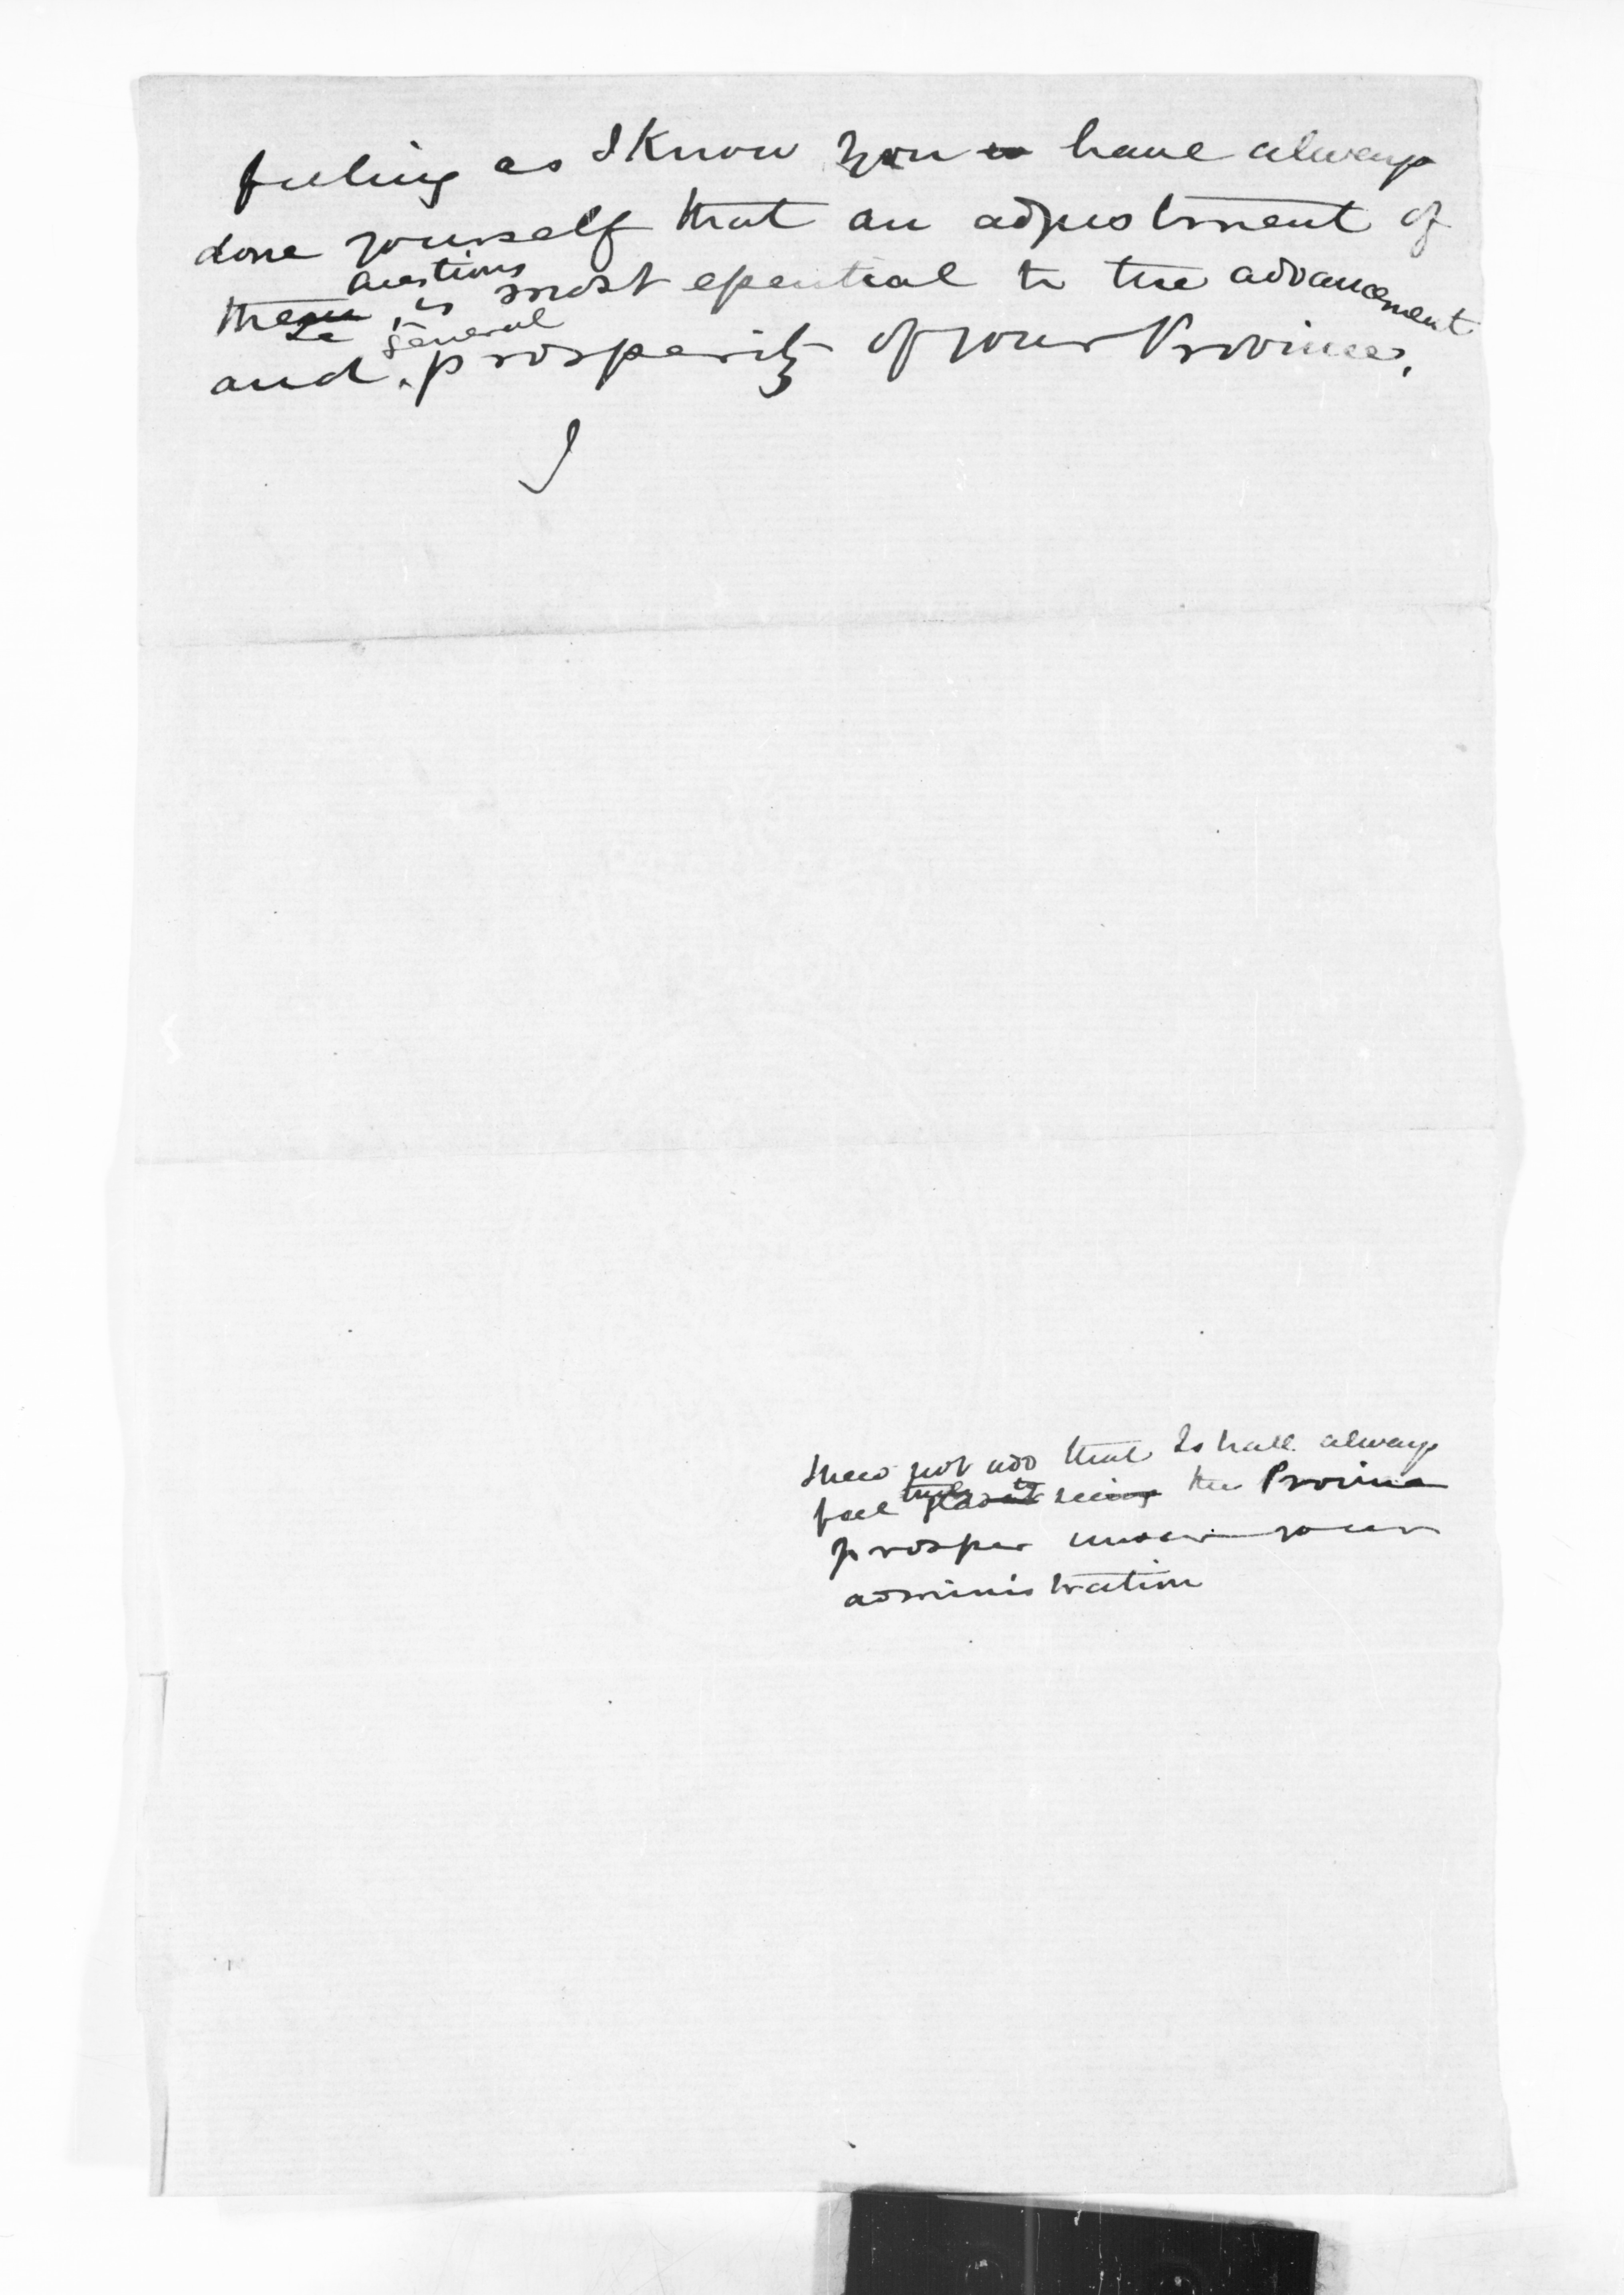 feeling as I know you have always
done yourself that an adjustment of
these questions is most essential to the advancement
and general prosperity of your Province.
I
I need not add that I shall always
feel to the Province
prosper under your
administration